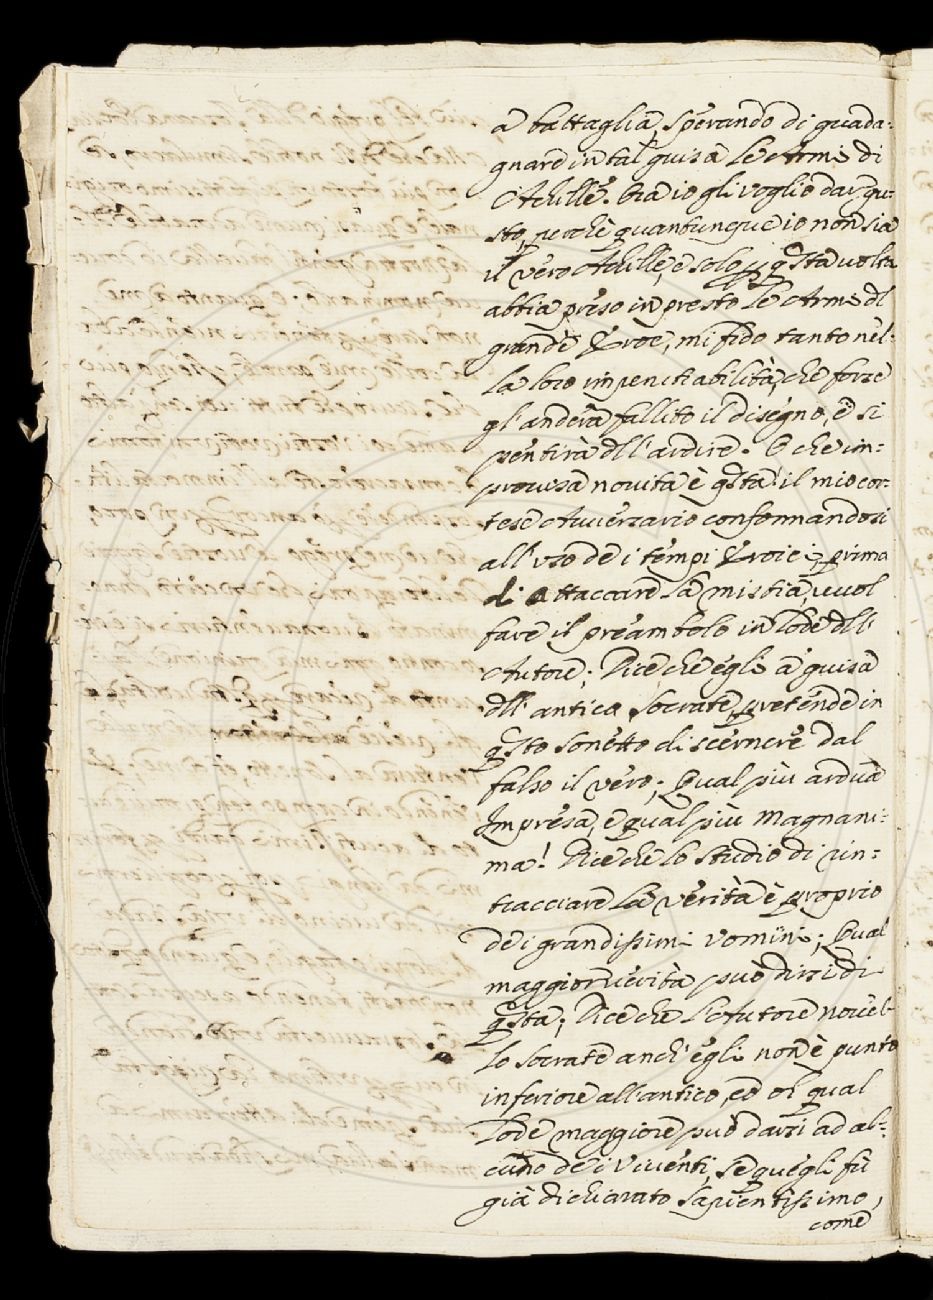 a battaglia, sperando di guada:
gnare in tal guisa le Armi di
Achille. Ora io gli voglio dar gu:
sto, perche quantunque io non sia
il vero Achille, e solo p qsta uolta
abbia preso in presto le Armi dl
grande Eroe, mi fido tanto nel:
la loro impenetrabilità, che forse
gl'anderà fallito il disegno, e si
pentirà dll'ardire. O che im:
prouisa nouità è qsta! il mio cor:
tese Avversario conformandosi
all'vso de i tempi Eroici, prima
di attaccare la mistia, uuol
fare il preambolo in lode dll'
Autore; Dice che egli a guisa
dll'antico Socrate, pretende in
qsto sonetto discernere dal
falso il vero; Qual più ardua
Impresa, e qual più magnani:
ma! Dice che lo studio di rin:
tracciare la verità è proprio
de i grandissimi vomini; Qual
maggior uerità può dirsi di
qsta; Dice che l'Autore nouel:
lo Socrate anch'egli non è punto
inferiore all'antico, ed oh qual
lode maggiore può darsi ad al:
cuno de i viventi, se quegli fù
già dichiarato sapientissimo,
come